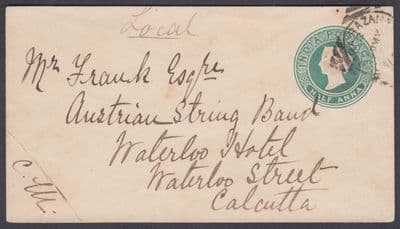 Local
INDIA POSTAGE
HALF ANNA
Mr Frank Esqre
Austrian String Band
Waterloo Hotel
Waterloo Street
Calcutta